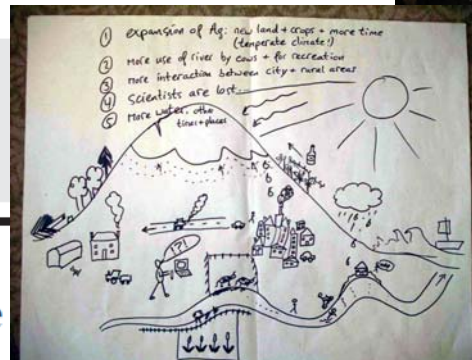 ① expansion of Ag: new land + crops + more time
(temperate climate!)
② More use of river by cows + for recreation
③ more interaction between city + rural areas
④ Scientists are lost...
⑤ More water, other
times + places
?!?!
e